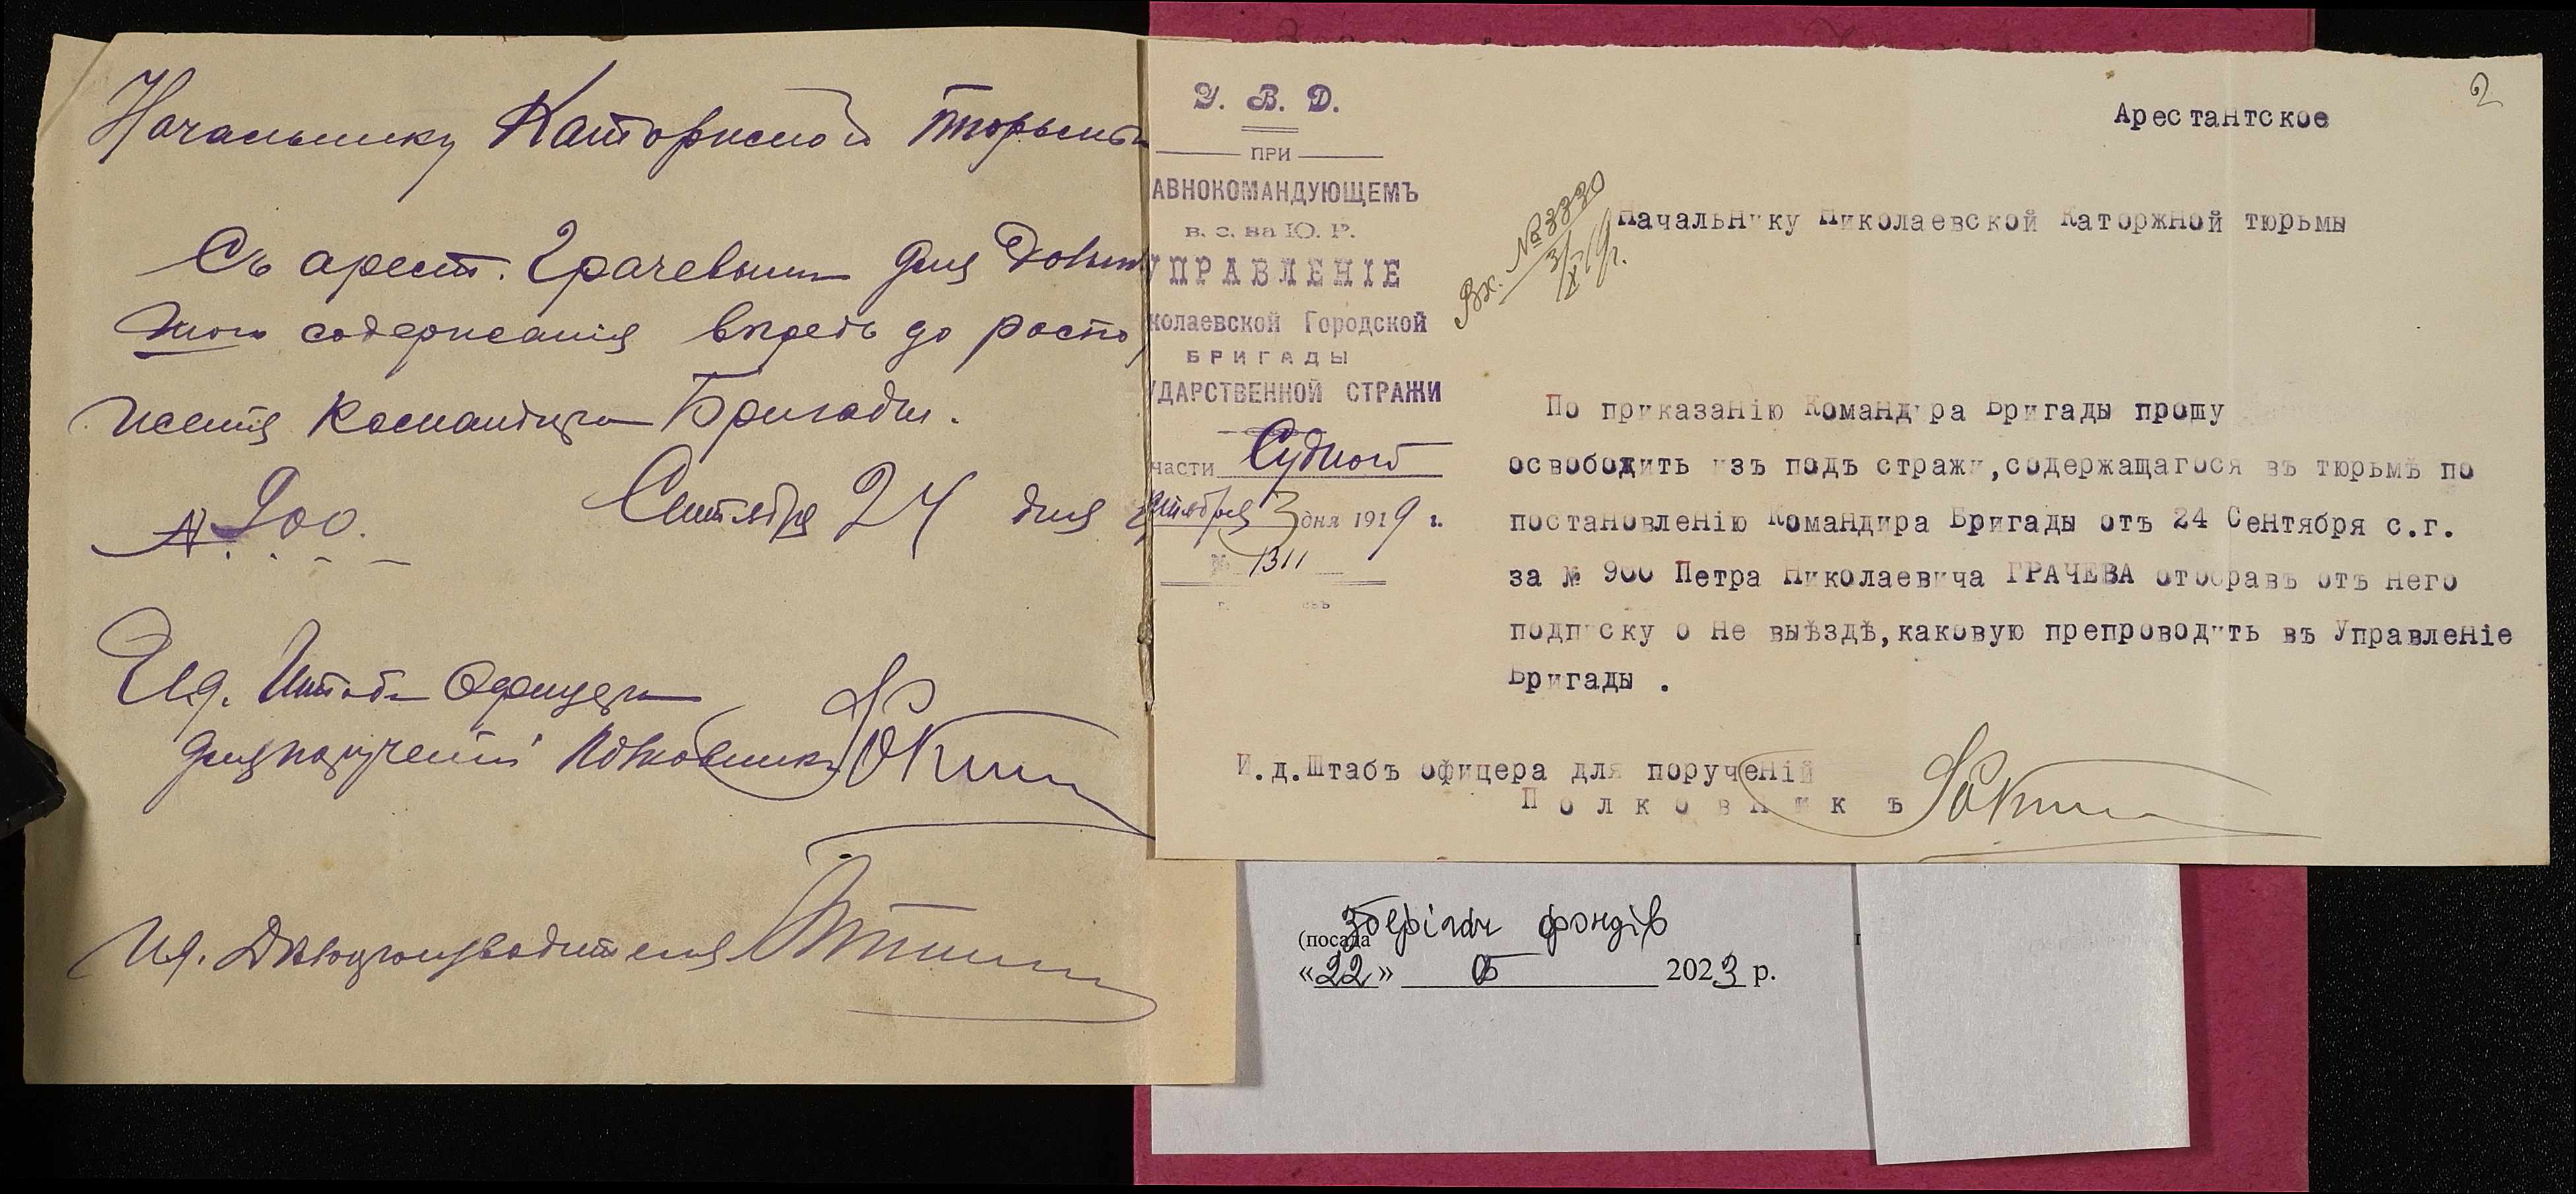 Начальнику Каторжной тюрьмы
Съ арест. Грачевымъ для дальн
содержанія впредь до распо
женія Командира Бригады.
№ 900. Сентября 24 дня
И.д. Штабъ Офицера
для порученій Полковникъ
И.д. Дѣлопроизводителя
У. В. Д.
ПРИ
АВНОКОМАНДУЮЩЕМЪ
В. С. на Ю. Р.
УПРАВЛЕНІЕ
колаевской Городской
БРИГАДЫ
УДАРСТВЕННОЙ СТРАЖИ
части Судной
Октября 3 дня 1919 г.
№ 1311
2
Арестантское
Вх. № 3330
3/X 19г.
Начальнику Николаевской Каторжной тюрьмы
По приказанію Командира Бригады прошу
освободить изъ подъ стражи,содержащагося въ тюрьмѣ по
постановленію Командира Бригады отъ 24 Сентября с.г.
за № 900 Петра Николаевича ГРАЧЕВА отобравъ отъ него
подписку о не выѣздѣ,каковую препроводить въ Управленіе
Бригады .
И.д.Штабъ офицера для порученій
Полковникъ
зберігач фондів
(посада
«22» 05 2023 р.